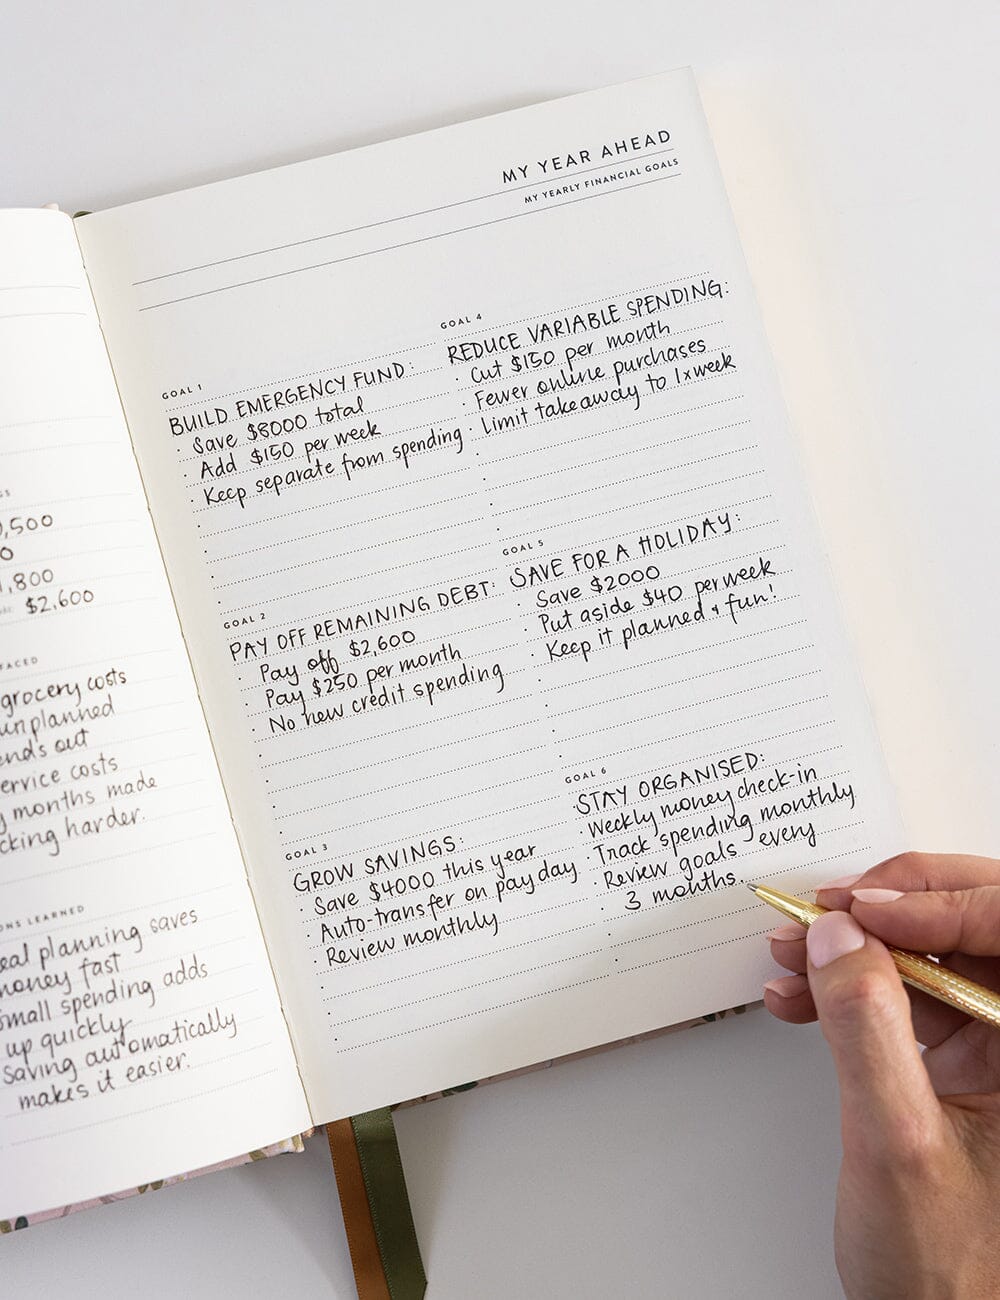 0,500
0
1,800
$2,600
FACED
grocery costs
unplanned
out
costs
months made
harder.
LEARNED
planning saves
money fast
Small spending adds
up quickly
Saving automatically
makes it easier.
MY YEAR AHEAD
MY YEARLY FINANCIAL GOALS
GOAL 1
BUILD EMERGENCY FUND:
· Save $8000 total
· Add $150 per week
· Keep separate from spending
GOAL 2
PAY OFF REMAINING DEBT:
· Pay off $2,600
· Pay $250 per month
· No new credit spending
GOAL 3
GROW SAVINGS:
· Save $4000 this year
· Auto-transfer on pay day
· Review monthly
GOAL 4
REDUCE VARIABLE SPENDING:
· Cut $150 per month
· Fewer online purchases
· Limit takeaway to 1x week
GOAL 5
SAVE FOR A HOLIDAY:
· Save $2000
· Put aside $40 per week
· Keep it planned + fun!
GOAL 6
STAY ORGANISED:
· Weekly money check-in
· Track spending monthly
· Review goals every
3 months.